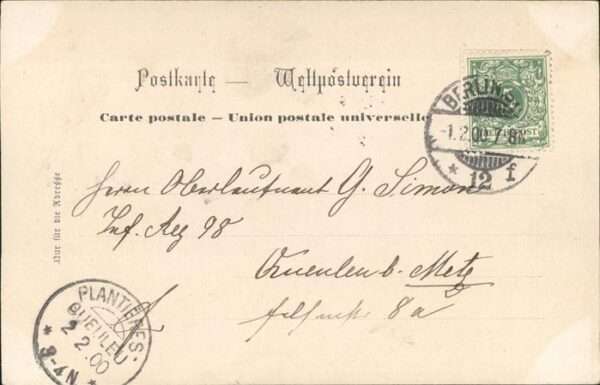 Postkarte — Weltpostverein
Carte postale — Union postale universelle
BERLIN S.
-1.2.00.7-8N.
* 12 f
Nur für die Adresse
Herrn Oberleutnant G. Simon
Inf. Reg 98
Queuleu b. Metz
8a
PLANTIERES-
QUEULEU
2 2.00
* 3-4N *